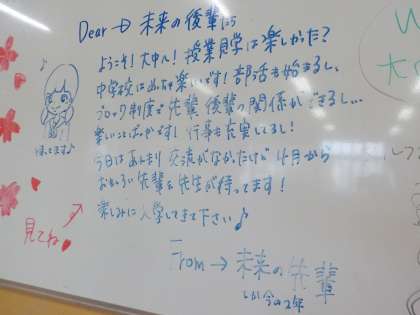 Dear → 未来の後輩たち
ようこそ!大中へ!授業見学は楽しかった?
中学校はめっちゃ楽しいです!部活も始まるし、
ブロック制度で先輩 後輩の関係ができるし…
楽しいことばかりです!行事も充実してるし!
今日はあんまり交流がなかったけど4月から
おもしろい先輩&先生が待ってます!
楽しみに入学してきて下さい♪
待ってます♪
見てね
From → 未来の先輩